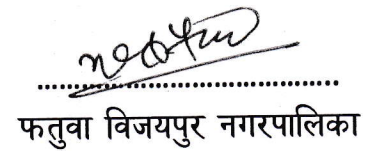 फतुवा विजयपुर नगरपालिका